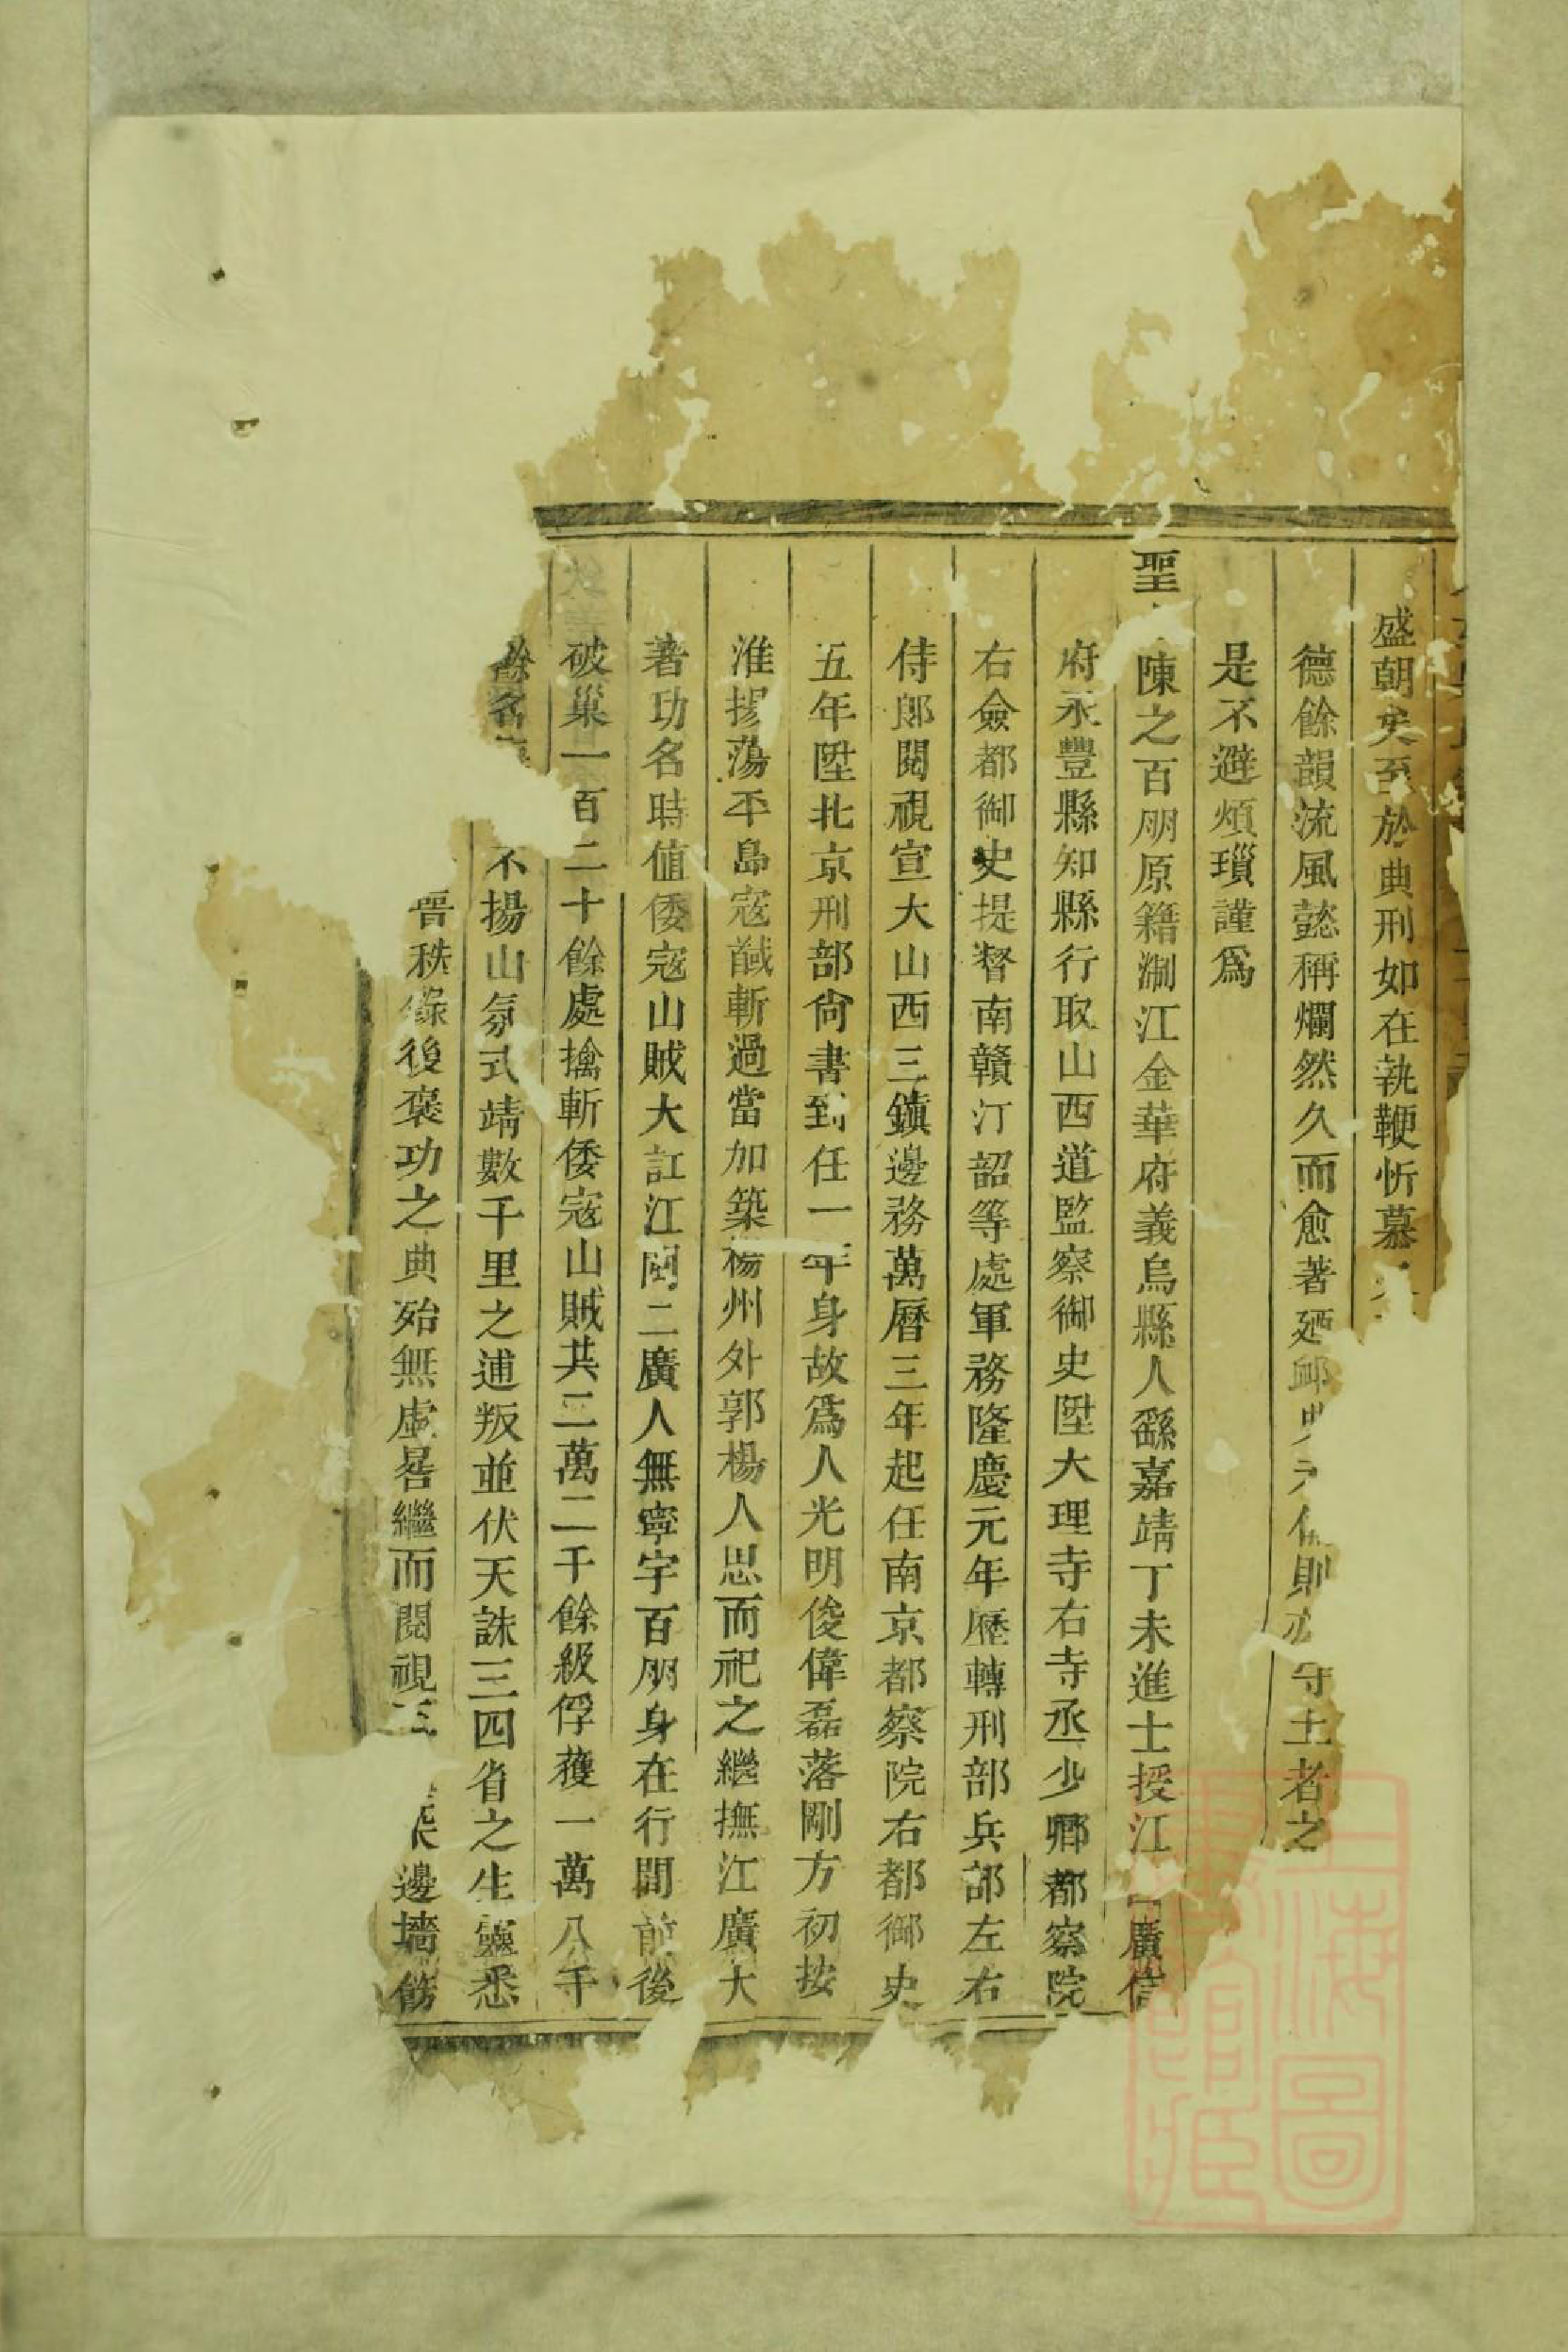 盛朝矣至於典刑如在執鞭忻慕
德餘韻流風懿稱爛然久而愈著 則 守土者之
是不避煩瑣謹爲
聖 陳之百朋原籍浙江金華府義烏縣人繇嘉靖丁未進士授江 廣信
府永豐縣知縣行取山西道監察御史陞大理寺右寺丞少卿都察院
右僉都御史提督南贛汀韶等處軍務隆慶元年歷轉刑部兵部左右
侍郎閱視宣大山西三鎮邊務萬曆三年起任南京都察院右都御史
五年陞北京刑部尙書到任一年身故爲人光明俊偉磊落剛方初按
淮揚蕩平島寇馘斬過當加築楊州外郭楊人思而祀之繼撫江廣大
著功名時值倭寇山賊大訌江閩二廣人無寧宇百朋身在行間前後
破巢一百二十餘處擒斬倭寇山賊共二萬二千餘級俘獲一萬八千
餘名 不揚山氛式靖數千里之逋叛並伏天誅三四省之生靈悉
晉秩錄後褒功之典殆無虛晷繼而閱視三 邊墻飭
上海圖書館藏